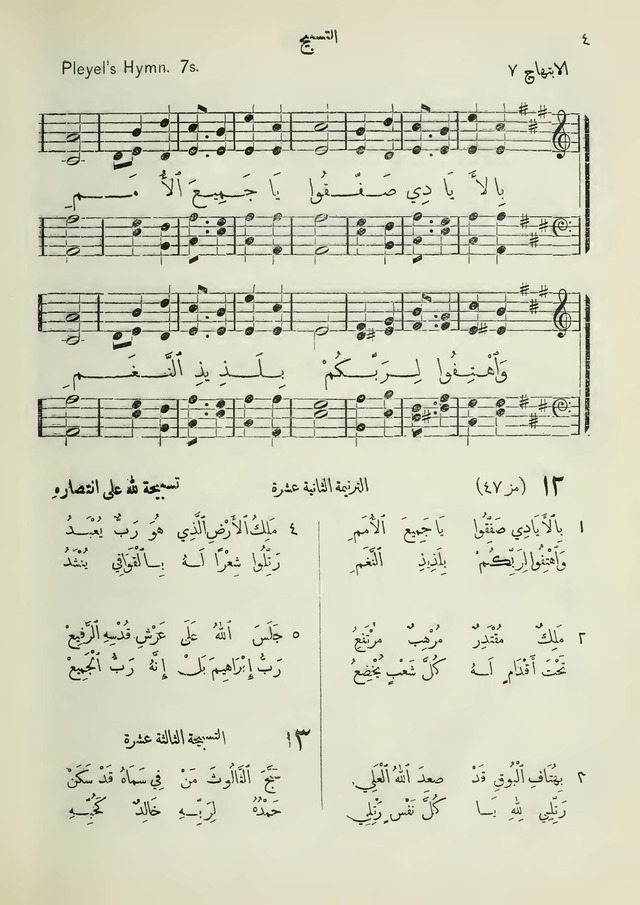 ٤
التسبيح
الابتهاج ٧
Pleyel's Hymn. 7s.
بِالأَ يَا دِي صَـفِّـقُوا يَا جَـمِيـعَ ٱلأُ مَـمِ
وَٱهْـتِـفُوا لِـرَبِّـكُمْ بِـلَـذِيذِ ٱلنَّـغَـمِ
١٢ (مز ٤٧) الترنيمة الثانية عشرة تسبيحة لله على انتصارهِ
١ بِالْأَيَادِي صَفِّقُوا يَا جَمِيعَ الْأُمَمِ
وَٱهْتِفُوا لِرَبِّكُمْ بِلَذِيذِ النَّغَمِ
٢ مَلِكٌ مُقْتَدِرٌ مُرْهِبٌ مُرْتَفِعُ
تَحْتَ أَقْدَامٍ لَهُ كُلَّ شَعْبٍ يُخْضِعُ
٢ بِهُتَافِ الْبُوقِ قَدْ صَعِدَ ٱللهُ الْعَلِي
رَتِّلِي لِلهِ يَا كُلَّ نَفْسٍ رَتِّلِي
٤ مَلِكُ الْأَرْضِ الَّذِي هُوَ رَبٌّ يُعْبَدُ
رَتِّلُوا شِعْرًا لَهُ بِالْقَوَافِي يُنْشَدُ
٥ جَلَسَ اللهُ عَلَى عَرْشِ قُدْسِهِ الرَّفِيعْ
رَبُّ إِبْرَاهِيمَ بَلْ إِنَّهُ رَبُّ الْجَمِيعْ
١٣ التسبيحة الثالثة عشرة
سَبَّحَ الثَّالُوثَ مَنْ فِي سَمَاهُ قَدْ سَكَنْ
حَمْدُهُ لِرَبِّهِ خَالِدٌ كَحُبِّهِ